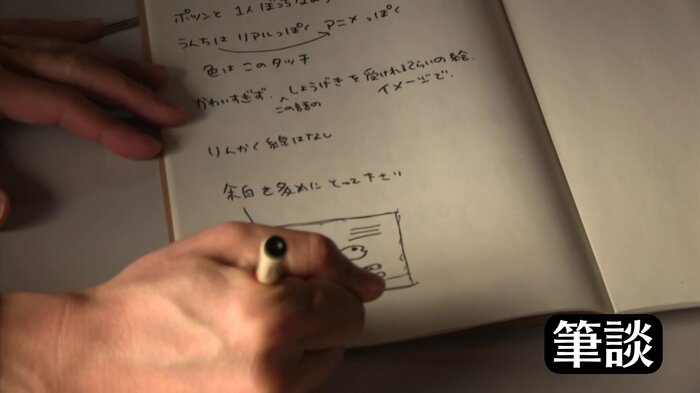 ポツンと 1人ぼっちな
うんちは リアルっぽく アニメっぽく
色は このタッチ
かわいすぎず、しょうげきを 受けれるぐらいの絵
この話の
イメージで、
りんかく線はなし
余白を多めに とって下さい
筆談